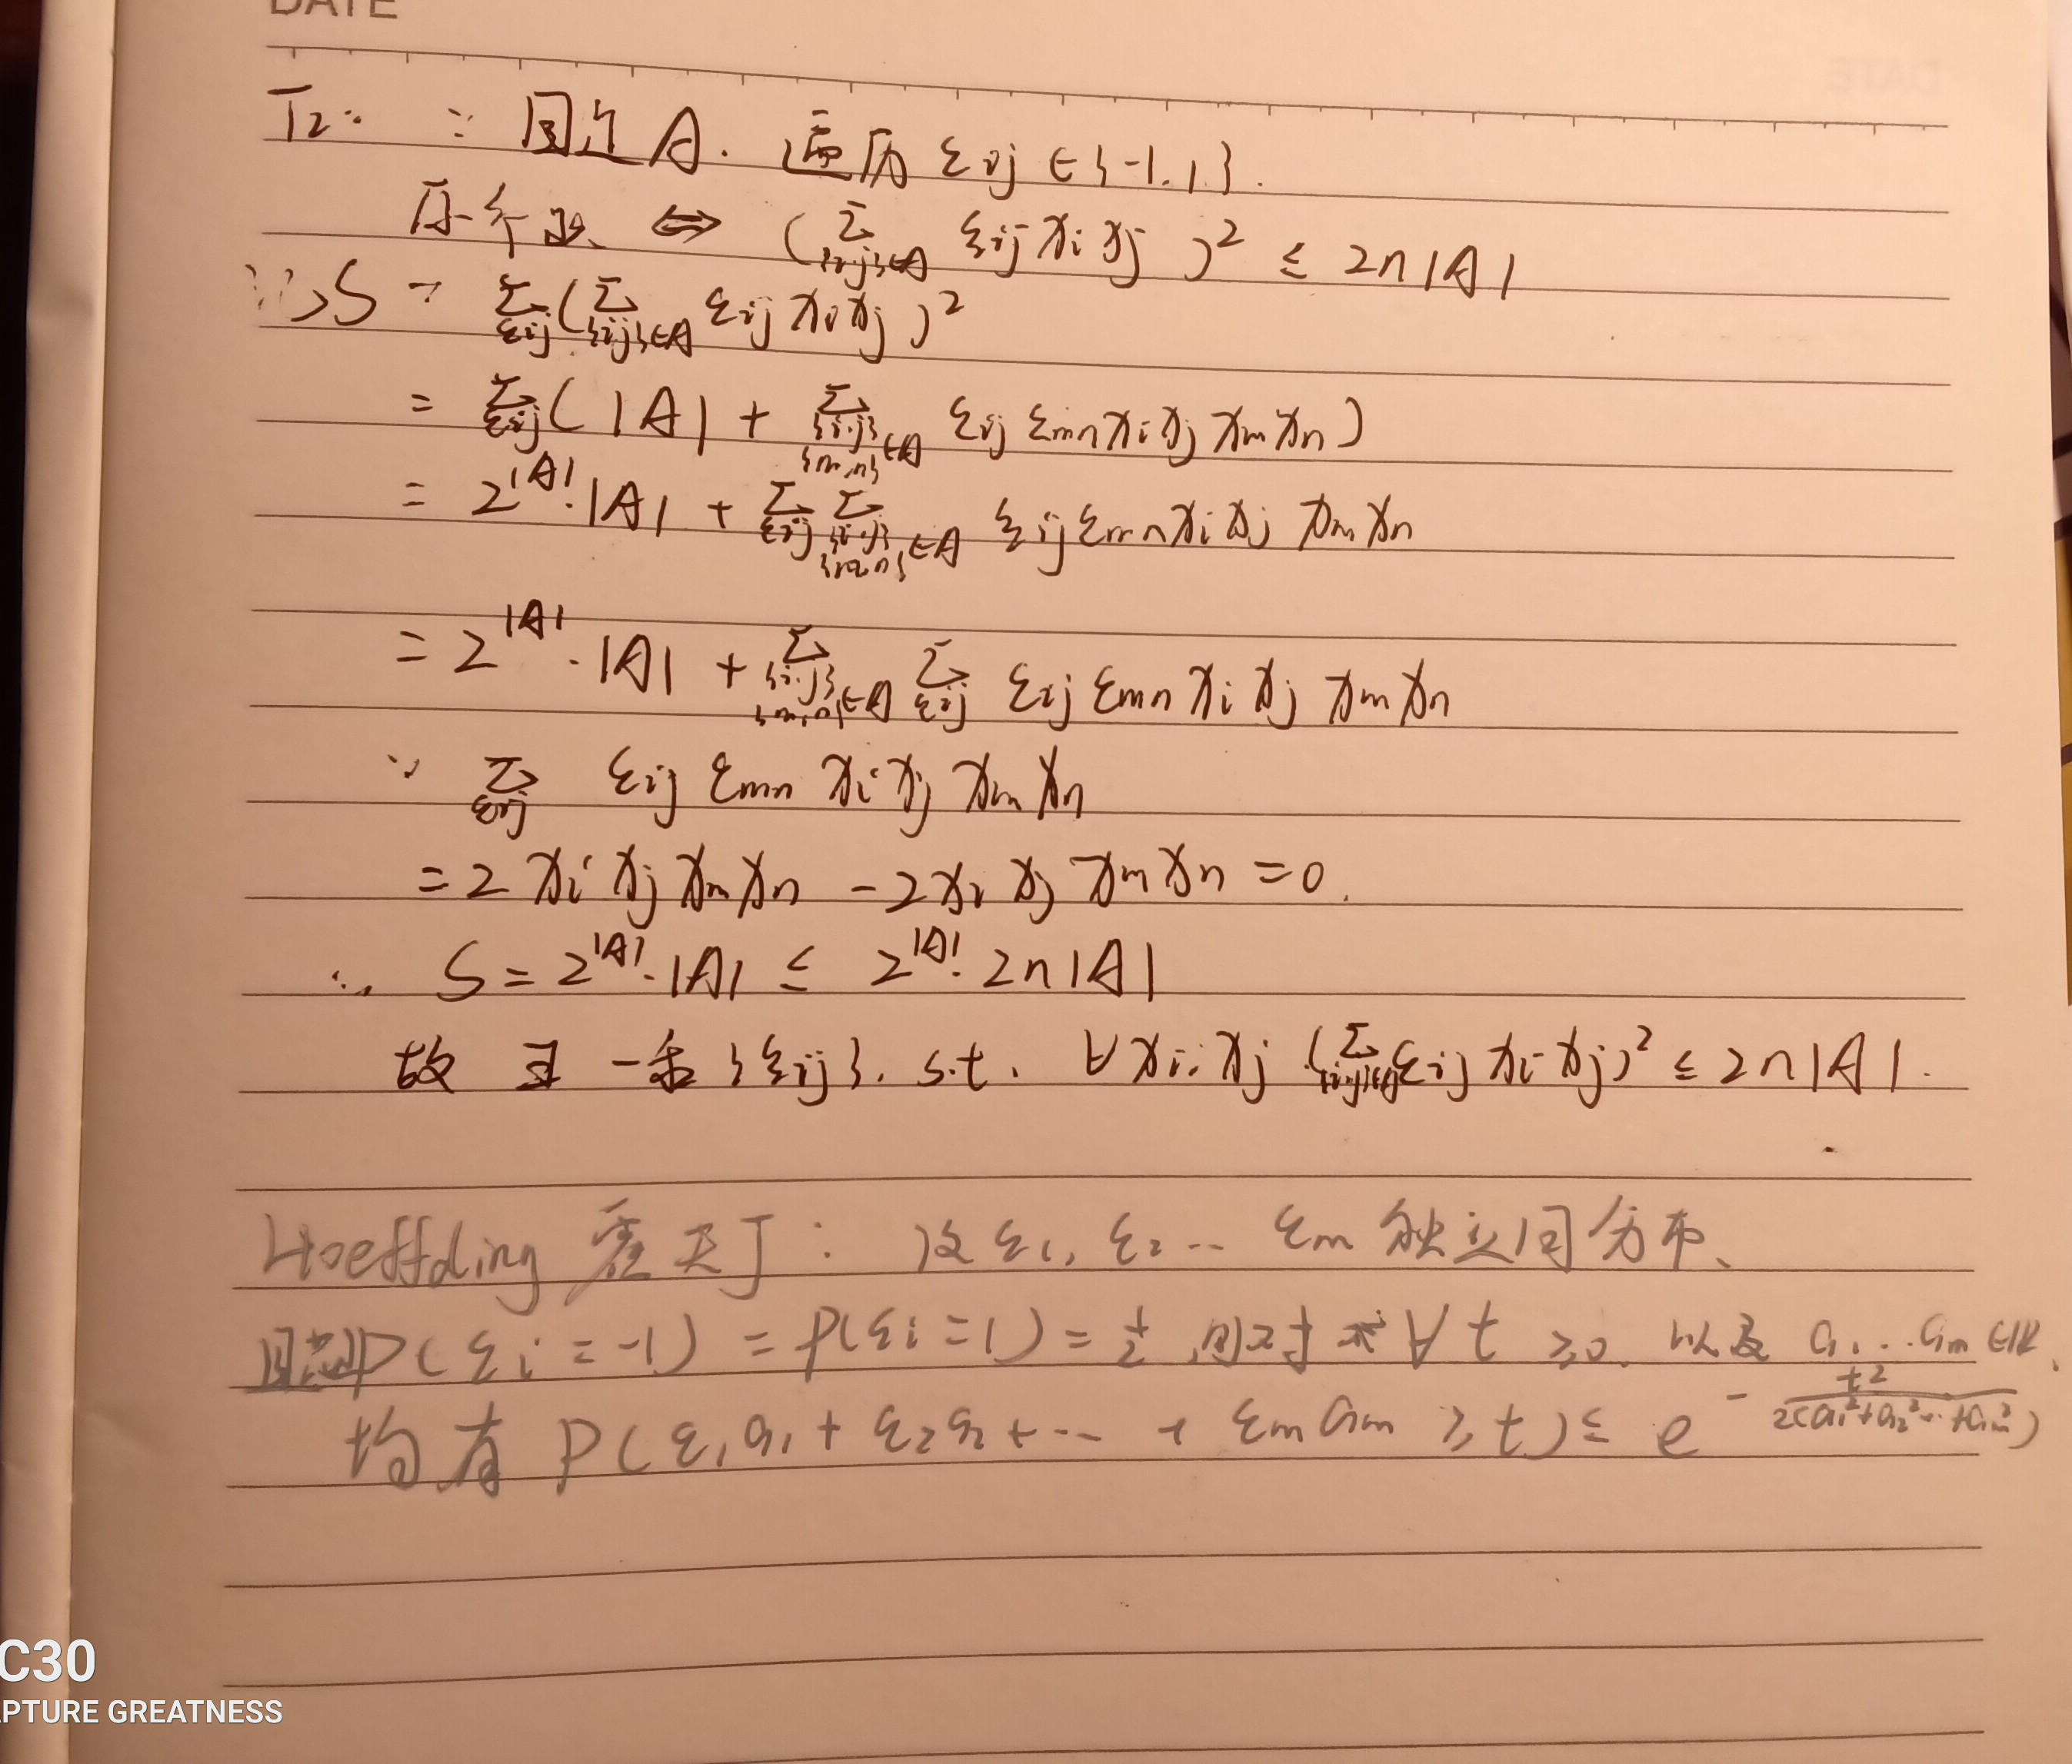 DATE
T2: : 固定A. 遍历 ε_{ij} ∈ {-1, 1}.
原条件 ⇔ (∑_{{i,j}∈A} ε_{ij} x_i x_j)^2 ≤ 2n|A|
S = ∑_{ε_{ij}} (∑_{{i,j}∈A} ε_{ij} x_i x_j)^2
= ∑_{ε_{ij}} (|A| + ∑_{{i,j},{m,n}∈A} ε_{ij} ε_{mn} x_i x_j x_m x_n)
= 2^{|A|}·|A| + ∑_{ε_{ij}} ∑_{{i,j},{m,n}∈A} ε_{ij} ε_{mn} x_i x_j x_m x_n
= 2^{|A|}·|A| + ∑_{{i,j},{m,n}∈A} ∑_{ε_{ij}} ε_{ij} ε_{mn} x_i x_j x_m x_n
∵ ∑_{ε_{ij}} ε_{ij} ε_{mn} x_i x_j x_m x_n
= 2 x_i x_j x_m x_n - 2 x_i x_j x_m x_n = 0.
∴ S = 2^{|A|}·|A| ≤ 2^{|A|}·2n|A|
故 ∃ 一组 {ε_{ij}}. s.t. ∀ x_i, x_j (∑_{{i,j}∈A} ε_{ij} x_i x_j)^2 ≤ 2n|A|.
Hoeffding : 设 ε_1, ε_2 … ε_m 独立同分布、
P(ε_i = -1) = P(ε_i = 1) = 1/2, 则对于 ∀ t ≥ 0. 以及 a_1 … a_m ∈ ℝ,
均有 P(ε_1 a_1 + ε_2 a_2 + … + ε_m a_m ≥ t) ≤ e^{-t^2/(2(a_1^2 + a_2^2 + … + a_m^2))}
C30
PTURE GREATNESS